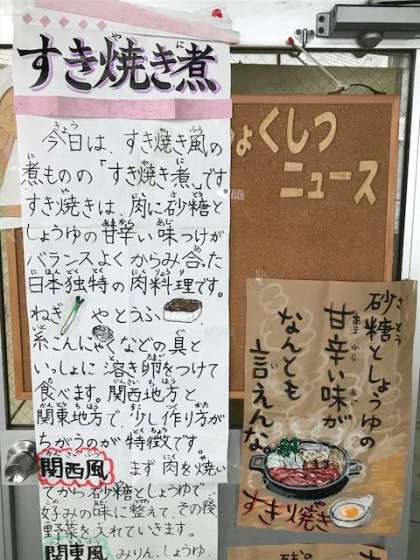 すき焼き煮
今日は、すき焼き風の
煮ものの「すき焼き煮」です。
すき焼きは、肉に砂糖と
しょうゆの甘辛い味つけが
バランスよくからみ合った
日本独特の肉料理です。
ねぎ やとうふ
糸こんにゃくなどの具と
いっしょに溶き卵をつけて
食べます。関西地方と
関東地方で、少し作り方が
ちがうのが特徴です。
関西風 まず肉を焼い
てから砂糖としょうゆで
好みの味に整えて、その後
野菜を入れていきます。
関東風 みりん、しょうゆ、
ょくしつ
ニュース
砂糖としょうゆの
甘辛い味が
なんとも
言えんな
すき焼き